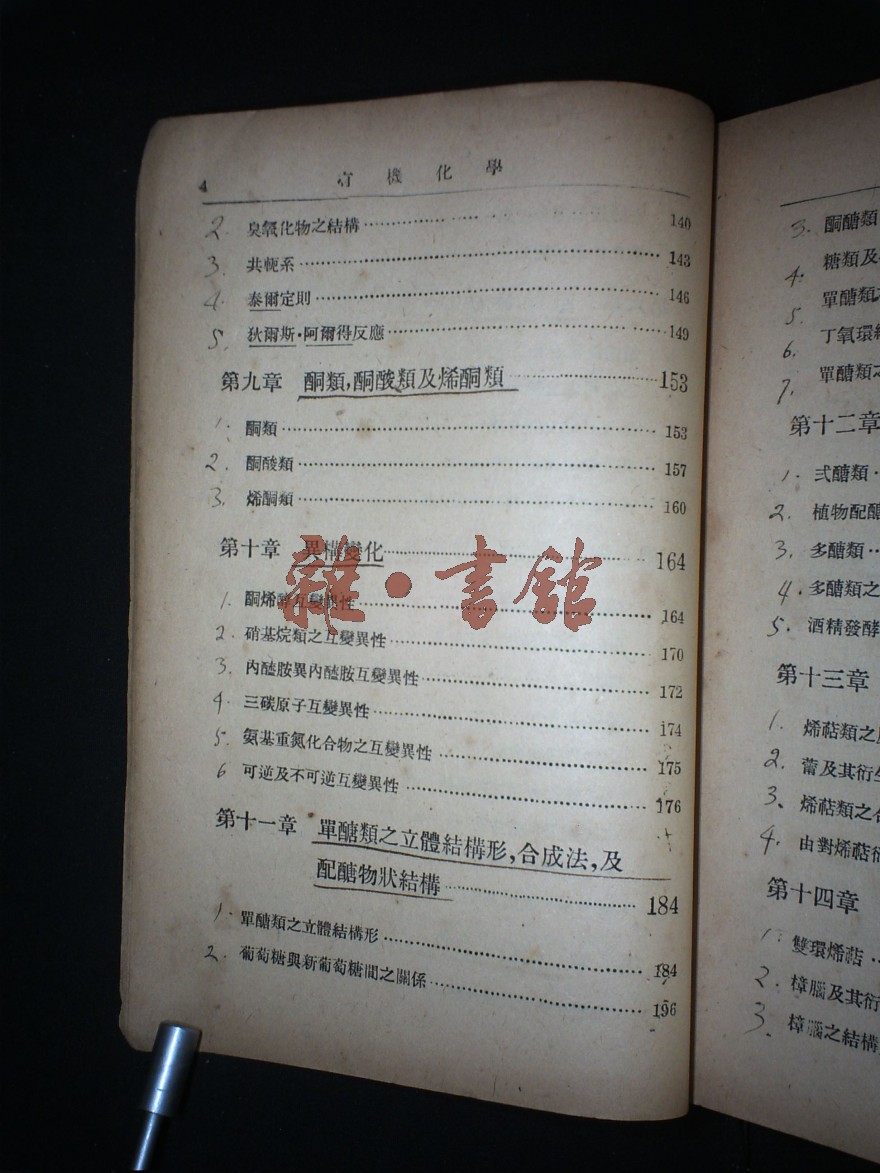 4 有機化學
2. 臭氧化物之結構 140
3. 共軛系 143
4. 泰爾定則 146
5. 狄爾斯·阿爾得反應 149
第九章 酮類,酮酸類及烯酮類 153
1. 酮類 153
2. 酮酸類 157
3. 烯酮類 160
第十章 異構變化 164
1. 酮烯醇互變異性 164
2. 硝基烷類之互變異性 170
3. 內醯胺異內醯胺互變異性 172
4. 三碳原子互變異性 174
5. 氨基重氮化合物之互變異性 175
6 可逆及不可逆互變異性 176
第十一章 單醣類之立體結構形,合成法,及
配醣物狀結構 184
1. 單醣類之立體結構形 184
2. 葡萄糖與新葡萄糖間之關係 196
雜·書館
3. 酮醣類
4. 糖類及
5. 單醣類之
6. 丁氧環
7. 單醣類之
第十二章
1. 弍醣類
2. 植物配醣
3. 多醣類
4. 多醣類之
5. 酒精發酵
第十三章
1. 烯萜類之
2. 䓝及其衍生
3. 烯萜類之合
4. 由對烯萜
第十四章
1. 雙環烯萜
2. 樟腦及其衍
3. 樟腦之結構